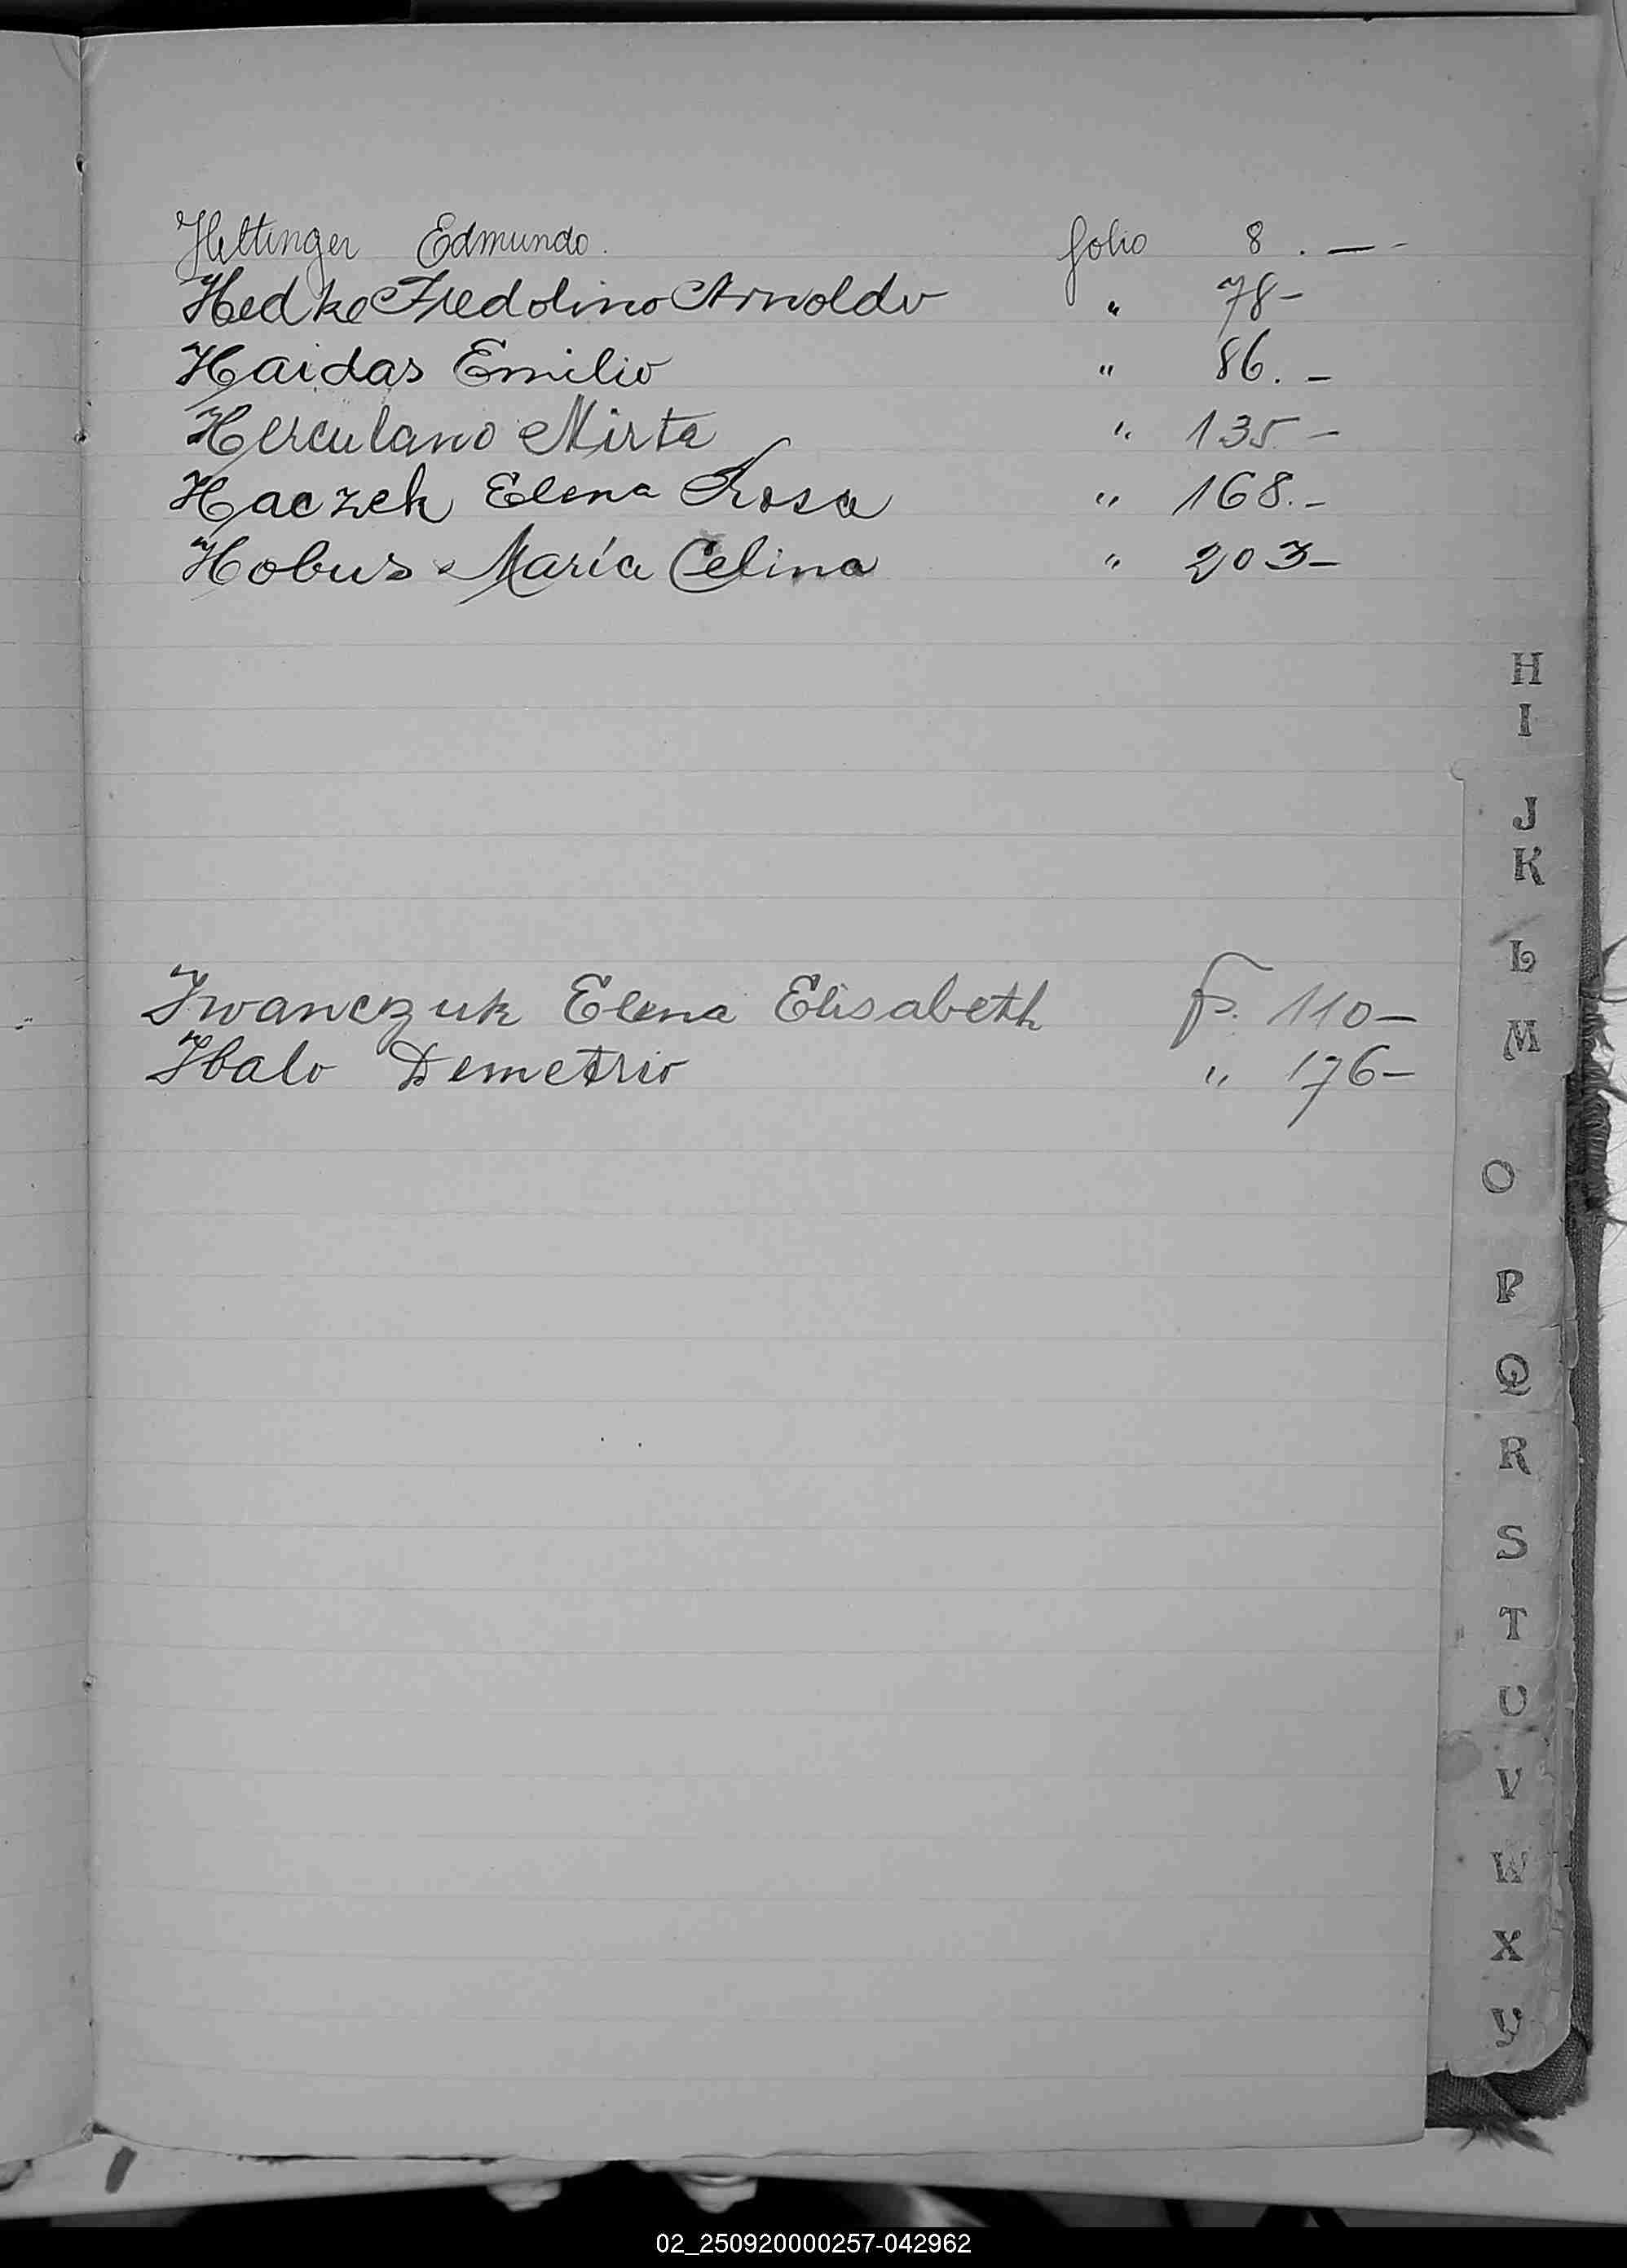 Hettinger Edmundo. folio 8 . — -
Hedke Fredolino Arnoldo " 78-
Haidas Emilio " 86.-
Herculano Mirta " 135.-
Haczek Elena Rosa " 168.-
Hobus María Celina " 203-
H
I
J
K
L
Iwanczuk Elena Elisabeth fs. 110-
M
Ibalo Demetrio " 176-
O
P
Q
R
S
T
U
V
W
X
Y
02_250920000257-042962